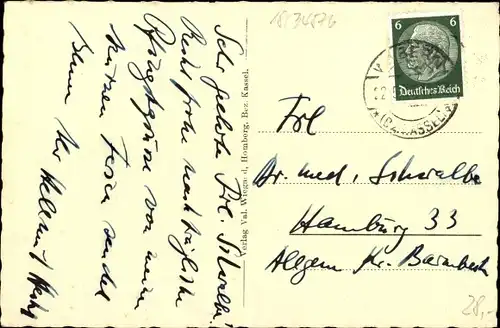 18/34876
6 6
Deutsches Reich
(BZ. KASSEL)
Sehr geehrte Frl. Schwalbe!
Recht frohe nachträgliche
Pfingstgrüße von meinen
kurzen Ferien sendet
Ihnen Ihr Helmut
Verlag Val. Wiegand, Homberg, Bez. Kassel.
Frl
Dr. med. Schwalbe
Hamburg 33
Allgem. Kr. Barmbeck
28,-